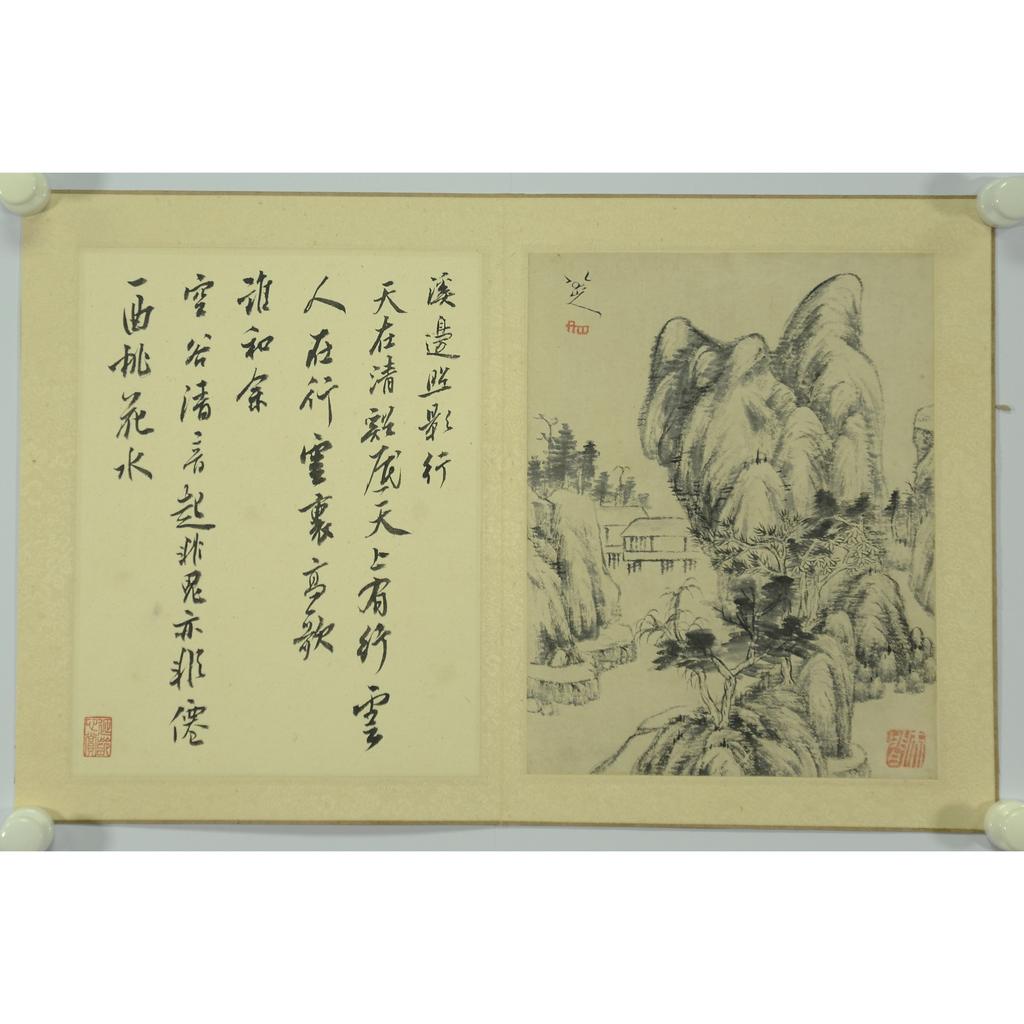 溪邊照影行
天在清谿底天上有行雲
人在行雲裏高歌
誰和余
空谷清音起非鬼亦非僊
一曲桃花水
八大山人